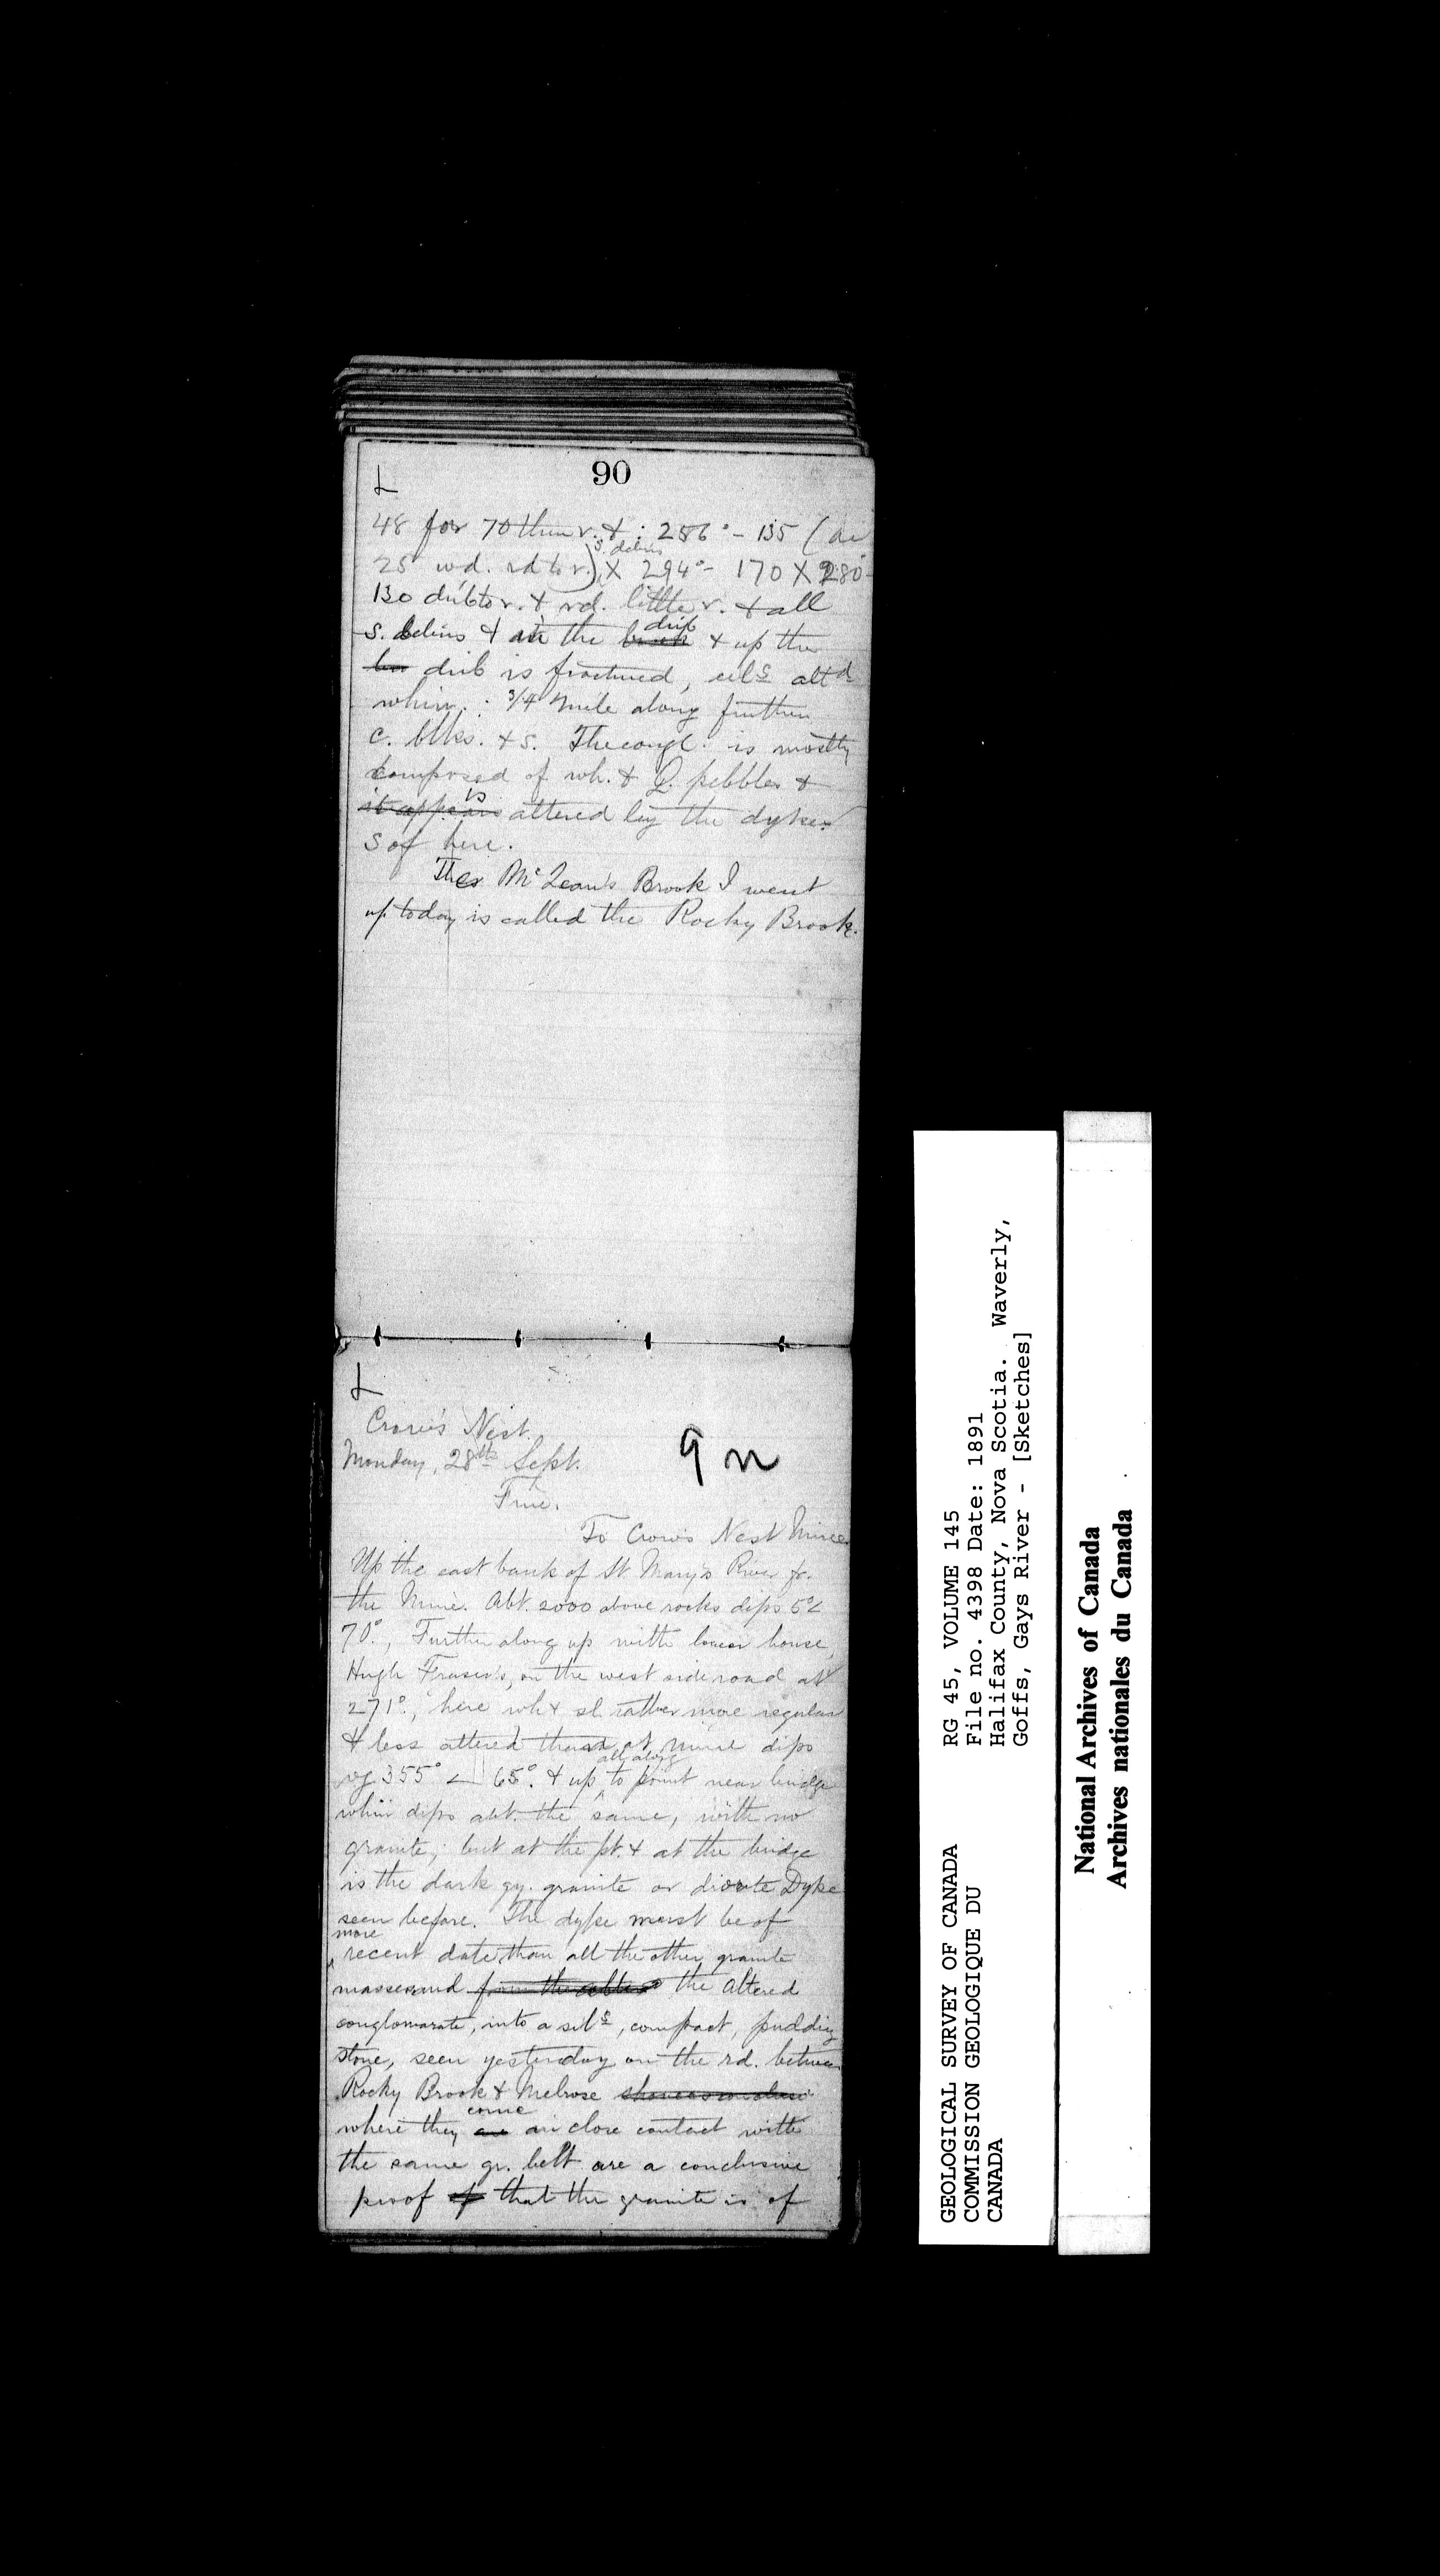 90
L
48 for 70 then r. & : 286° - 135 (at
25 wd. rd to r.) s. debris X 294° - 170 X 280 -
130 drib to r. & rd. little r. & all
s. debris & in the brook drib & up the
drib is fractured, sils altd
whin. : 3/4 mile along further
c. blks. & s. The congl. is mostly
composed of wh. & Q. pebbles &
it appears is altered by the dykes
S of here.
The McLean's Brook I went
up today is called the Rocky Brook.
L
Crow's Nest.
Monday, 28th Sept.
9 n
Fine.
To Crow's Nest Mine
Up the east bank of St Mary's River fr.
the Mine. Abt. 2000 above rocks dips 5° <
70°. Further along up with lower house,
Hugh Fraser's, on the west side road at
271°, here wh & sl rather more regular
& less altered than at mine dips
reg 355° < 65°. & up all along to point near bridge
whin dips abt. the same, with no
granite; but at the pt. & at the bridge
is the dark gy. granite or diorite Dyke
seen before. The dyke must be of
more recent date than all the other granite
masses and from the altered the altered
conglomarate, into a sils, compact, pudding
stone, seen yesterday on the rd. between
Rocky Brook & Melrose
where they are come in close contact with
the same gr. belt are a conclusive
proof of that the granite is of
GEOLOGICAL SURVEY OF CANADA
COMMISSION GEOLOGIQUE DU
CANADA
RG 45, VOLUME 145
File no. 4398 Date: 1891
Halifax County, Nova Scotia. Waverly,
Goffs, Gays River - [Sketches]
National Archives of Canada
Archives nationales du Canada